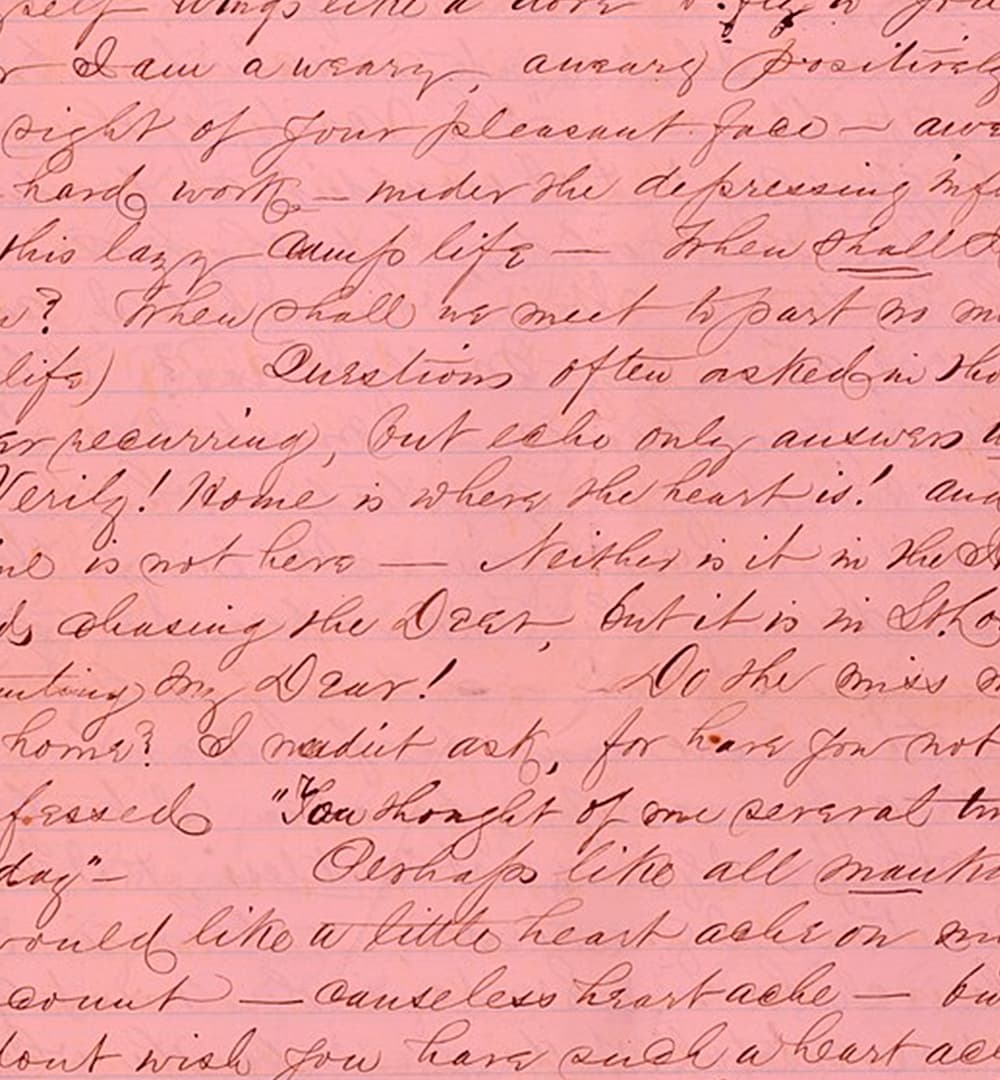 wings like a dove
I am a weary, aweary positively
sight of your pleasant face — awa
hard work — under the depressing inf
this lazy camp life — When shall I
? When shall we meet to part no m
life) Questions often asked in tho
recurring, but echo only answers
Verily! Home is where the heart is! and
is not here — Neither is it in the
chasing the Deer, but it is in
my Dear! Do she miss m
home? I needn't ask, for have you not
fessed "You thought of me several tim
day" — Perhaps like all manki
would like a little heart ache on m
count — causeless heart ache — bu
dont wish you have such a heart ac